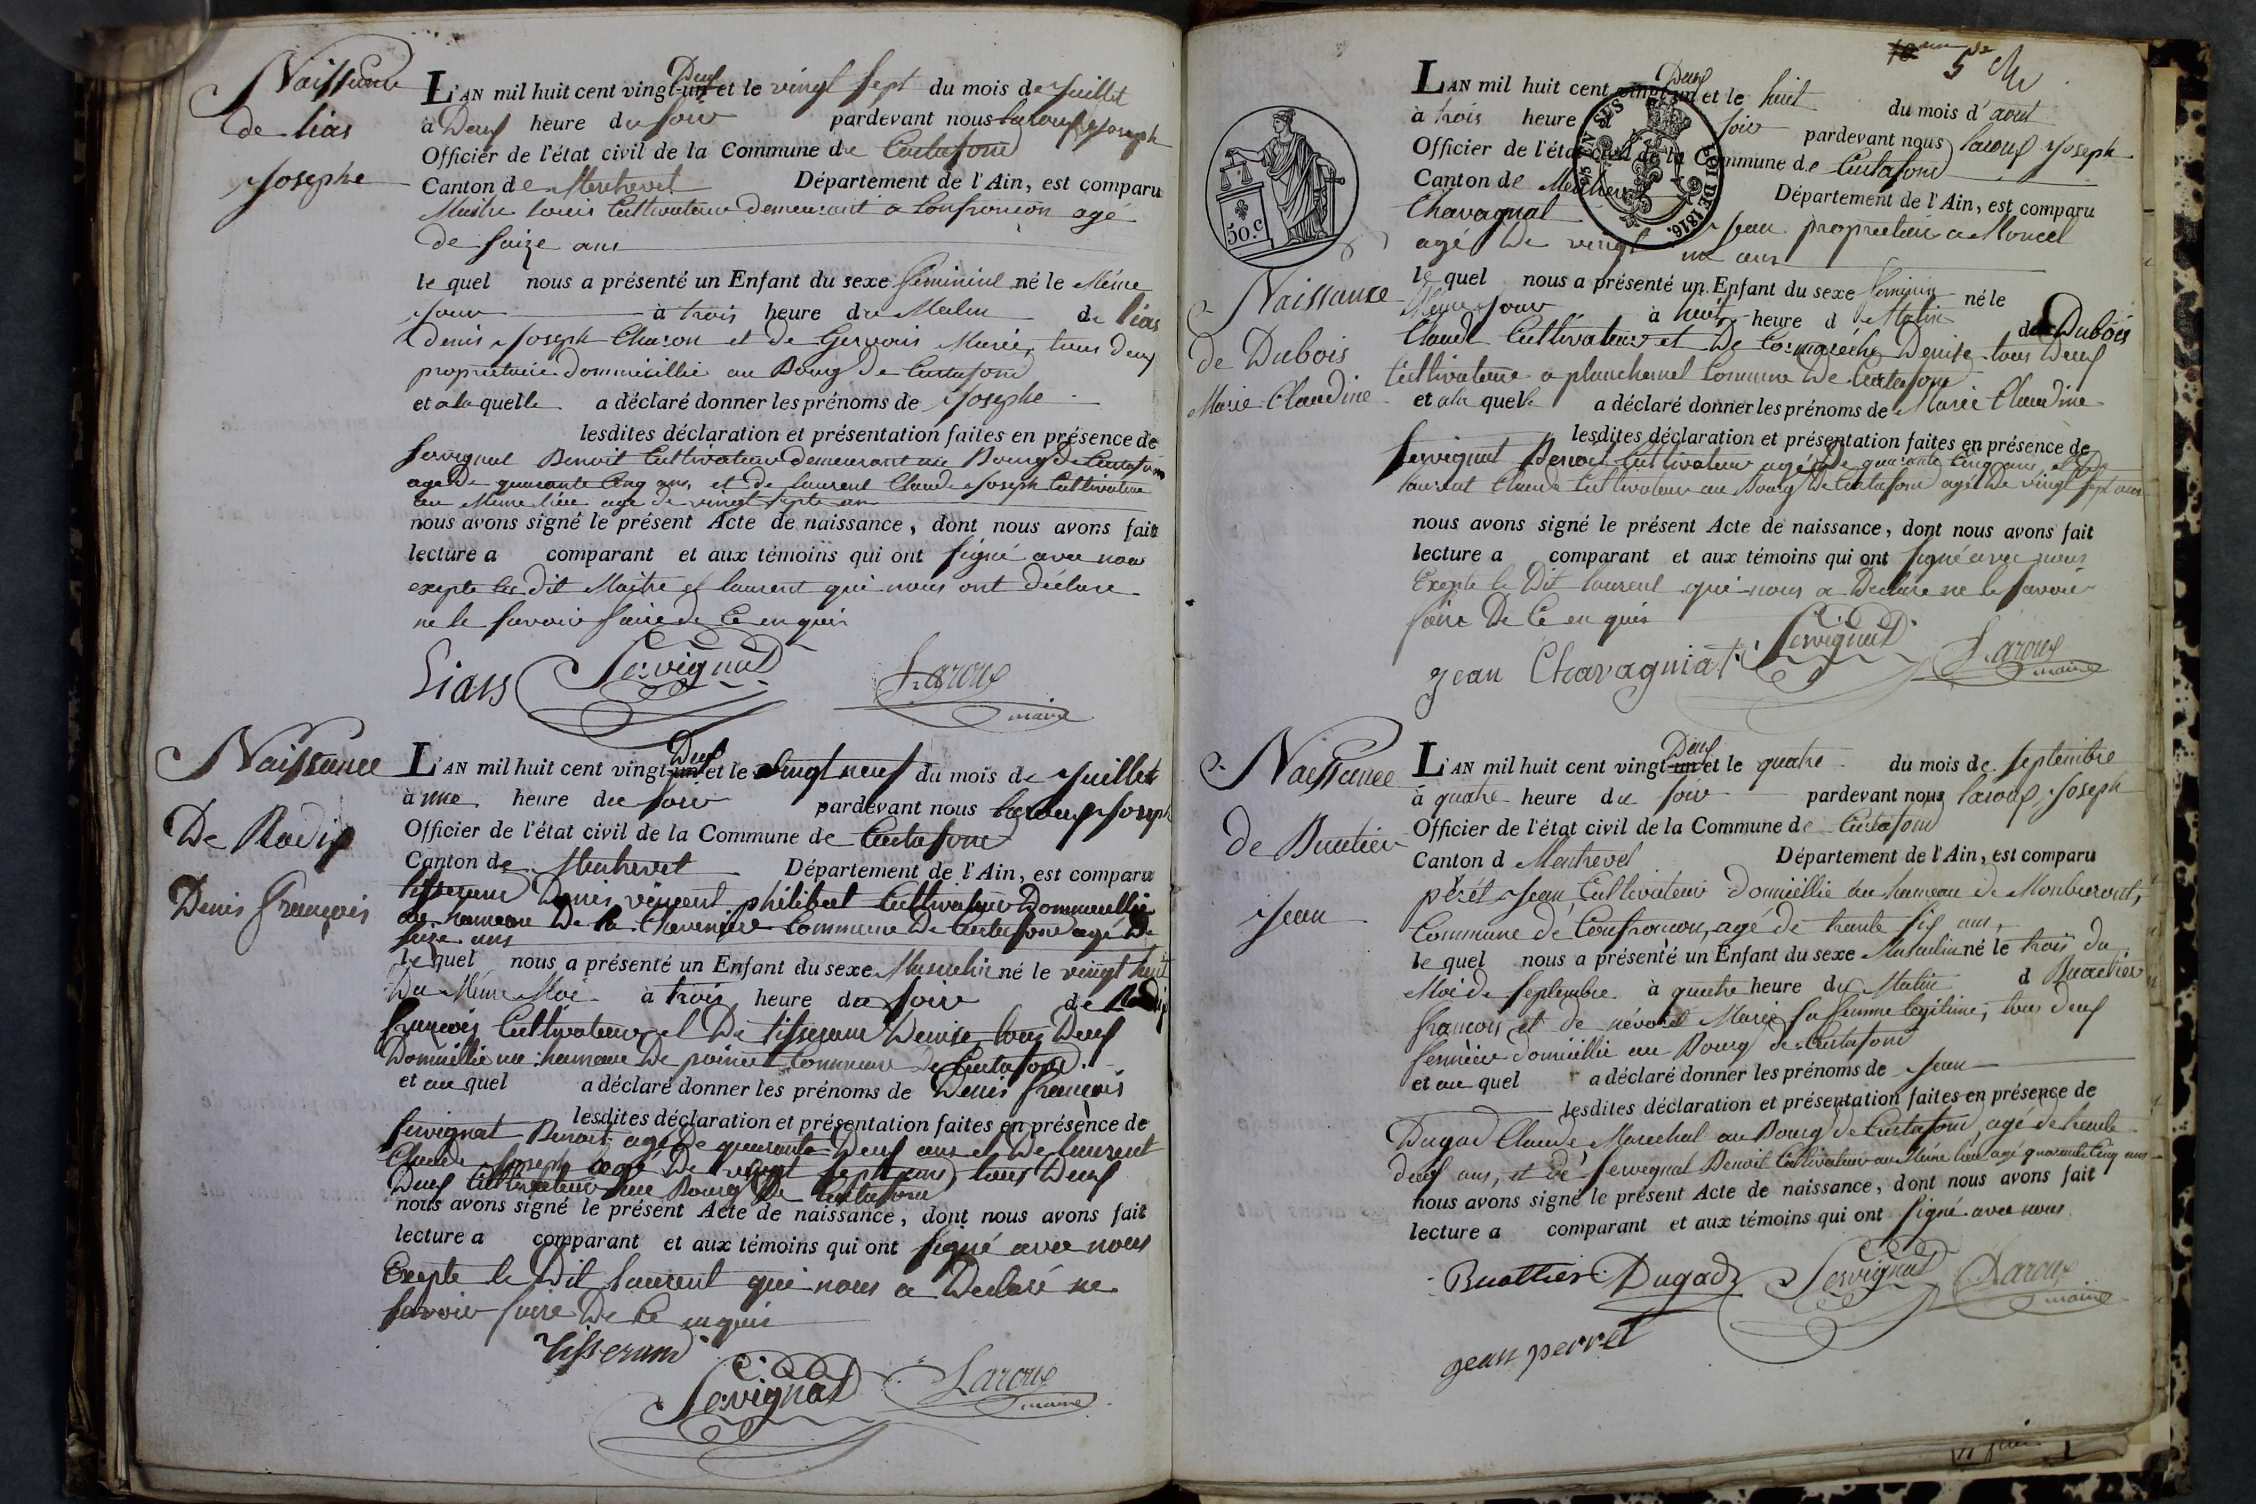 Naissance
de lias
Josephe
L'AN mil huit cent vingt-un Deux et le vingt sept du mois de Juillet
à Deux heure du soir pardevant nous Laroux Joseph
Officier de l'état civil de la Commune de Curtafond
Canton de Montrevet Département de l'Ain, est comparu
Maitre Louis Cultivateur Demeurant a Confrancon agé
de saize ans
le quel nous a présenté un Enfant du sexe feminine né le Méme
Jour à trois heure du Matin de lias
Denis Joseph et de Gervais Marie, tous deux
propriétaire Dommicillie au Bourg de Curtafond
et a la quelle a déclaré donner les prénoms de Josephe
lesdites déclaration et présentation faites en présence de
Servignat Benoit Cultivateur demeurant au Bourg de Curtafond
agé de quarante Cinq ans, et de laurent Claude Joseph Cultivateur
au Meme lieu agé de vingt sept an
nous avons signé le présent Acte de naissance, dont nous avons fait
lecture a comparant et aux témoins qui ont signé avec nous
exepte les dit Maitre et laurent qui nous ont déclare
ne le savoir faire de Ce enquis
Lias Servignat Laroux
maire
Naissance
De Radix
Denis François
L'AN mil huit cent vingt-un Deux et le vingt neuf du mois de Juillet
à une heure du soir pardevant nous Laroux Joseph
Officier de l'état civil de la Commune de Curtafond
Canton de Montrevet Département de l'Ain, est comparu
tisserand Denis vincent philibert Cultivateur Dommicillie
au hameau De la Commune De Curtafond agé De
saize ans
le quel nous a présenté un Enfant du sexe Masculin né le vingt huit
Du Méme Moi à trois heure du soir de Radix
françois Cultivateur et De tisserand Denise tous Deux
Domicillie au hameau De Commune De Curtafond
et au quel a déclaré donner les prénoms de Denis françois
lesdites déclaration et présentation faites en présence de
Servignat Benoit agé De quarante Deux ans et De laurent
Claude Joseph agé De vingt sept ans, tous Deux
Deux Cultivateur au Bourg De Curtafond
nous avons signé le présent Acte de naissance, dont nous avons fait
lecture a comparant et aux témoins qui ont signé avec nous
Exepte le Dit laurent qui nous a Declaré ne
savoir faire De Ce enquis
tisserand
Servignat Laroux
maire
5
LOI DE 1816.
50.c
Naissance
de Dubois
Marie Claudine
L'AN mil huit cent vingt-un Deux et le huit du mois d'aout
à trois heure d soir pardevant nous Laroux Joseph
Officier de l'état civil de la Commune de Curtafond
Canton de Montrevet Département de l'Ain, est comparu
Chavagnat Jean proprietaire a Moncel
agé De vingt un ans
le quel nous a présenté un Enfant du sexe feminin né le
Méme Jour à huit heure d Matin de Dubois
Claude Cultivateur et De Denise tous Deux
Cultivateur a planchamel Commune De Curtafond
et a la quele a déclaré donner les prénoms de Marie Claudine
lesdites déclaration et présentation faites en présence de
Servignat Benoit Cultivateur agé De quarante Cinq ans et De
laurent Claude Cultivateur au Bourg De Curtafond agé De vingt sept ans
nous avons signé le présent Acte de naissance, dont nous avons fait
lecture a comparant et aux témoins qui ont signé avec nous
Exepte le Dit laurent qui nous a Declaré ne le savoir
faire De Ce enquis
jean Chavagniat Servignat Laroux
maire
Naissance
de Buatier
Jean
L'AN mil huit cent vingt-un Deux et le quatre du mois de Septembre
à quatre heure du soir pardevant nous Laroux Joseph
Officier de l'état civil de la Commune de Curtafond
Canton d Montrevel Département de l'Ain, est comparu
pérét Jean Cultivateur domicillie au hameau de
Commune de Confrancon, agé de trente six ans,
le quel nous a présenté un Enfant du sexe Masculin né le trois du
Moi de Septembre à quatre heure du Matin d Buatier
francois et de névoret Marie sa femme legitime, tous deux
fermier domicillie au Bourg de Curtafond
et au quel a déclaré donner les prénoms de Jean
lesdites déclaration et présentation faites en présence de
Dugad Claude Marechal au Bourg de Curtafond, agé de trente
deux ans, et de Servignat Benoit Cultivateur au Méme lieu agé quarante Cinq ans
nous avons signé le présent Acte de naissance, dont nous avons fait
lecture a comparant et aux témoins qui ont signé avec nous
Buattier Dugad Servignat Laroux
maire
jean perret